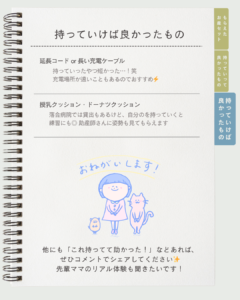 持っていけば良かったもの
延長コード or 長い充電ケーブル
持っていったやつ短かった…！笑
充電場所が遠いこともあるのでおすすめ✨
授乳クッション・ドーナツクッション
落合病院では貸出もあるけど、自分のを持っていくと
練習にも◎ 助産師さんに姿勢も見てもらえます
おねがいします！
他にも「これ持ってて助かった！」などあれば、
ぜひコメントでシェアしてください✨
先輩ママのリアル体験も聞きたいです！
持っていけば
良かったもの